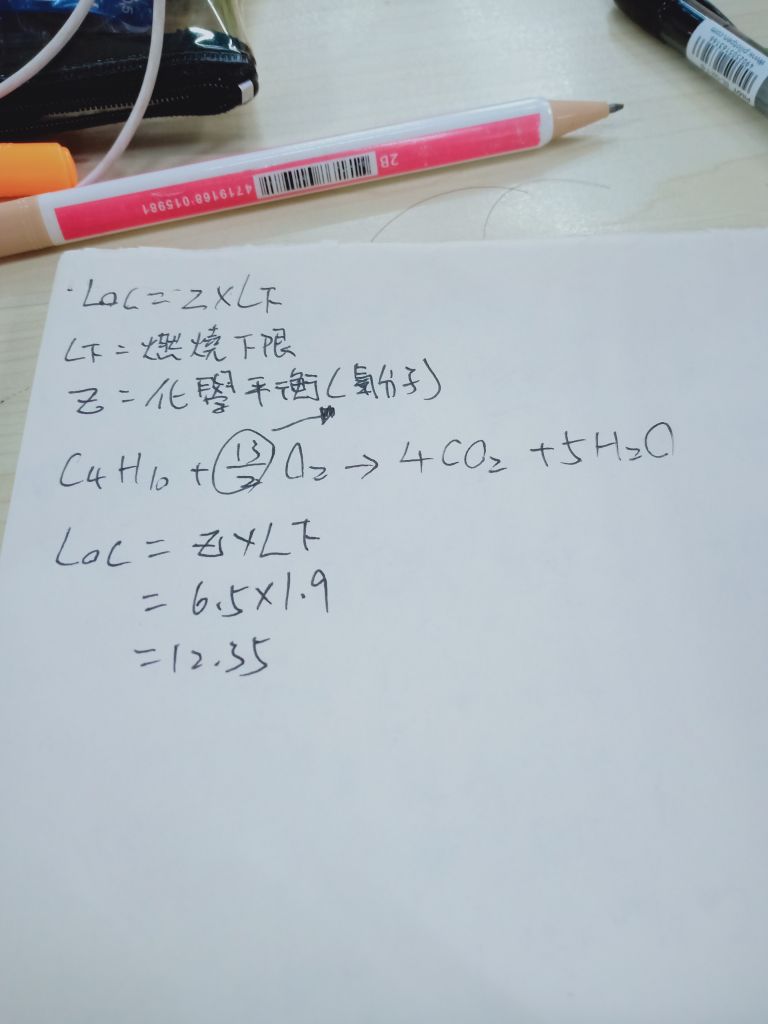 2B
4719168 015981
·LOC = Z×L下
L下 = 燃燒下限
Z = 化學平衡(氧分子)
C4H10 + 13/2 O2 → 4CO2 + 5H2O
LOC = Z×L下
= 6.5×1.9
= 12.35